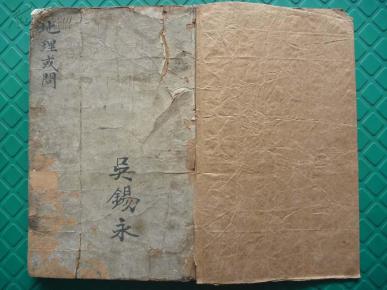 地理或問
吳錫永